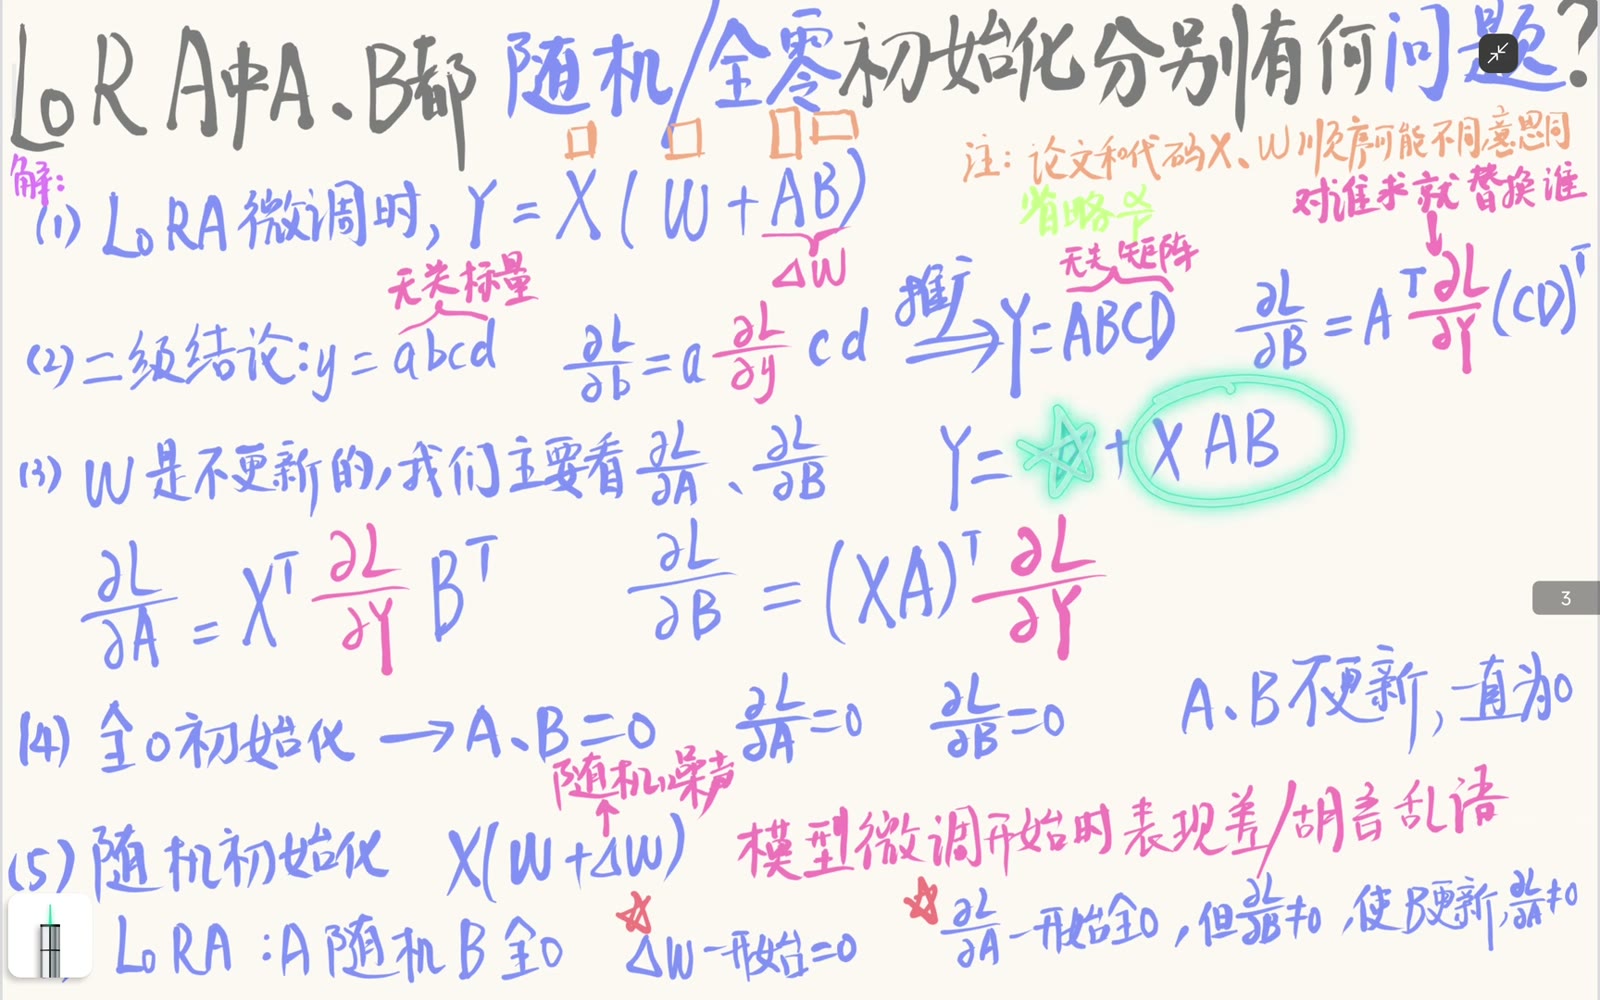 LoRA中A、B都随机/全零初始化分别有何问题?
注: 论文和代码X、W顺序可能不同,意思同
解:
(1) LoRA微调时, Y = X(W+AB)
ΔW
省略 α/r
对谁求就替换谁
无关标量
无关矩阵
(2) 二级结论: y = abcd ∂L/∂b = a ∂L/∂y cd 推广 ⟹ Y = ABCD ∂L/∂B = A^T ∂L/∂Y (CD)^T
(3) W是不更新的,我们主要看 ∂L/∂A 、 ∂L/∂B Y = ☆ + XAB
∂L/∂A = X^T ∂L/∂Y B^T ∂L/∂B = (XA)^T ∂L/∂Y
(4) 全0初始化 → A、B=0 ∂L/∂A=0 ∂L/∂B=0 A、B不更新,一直为0
随机噪声
(5) 随机初始化 X(W+ΔW) 模型微调开始时表现差/胡言乱语
LoRA: A随机B全0 ☆ ΔW一开始=0 ☆ ∂L/∂A一开始全0, 但∂L/∂B≠0, 使B更新, ∂L/∂A≠0
3